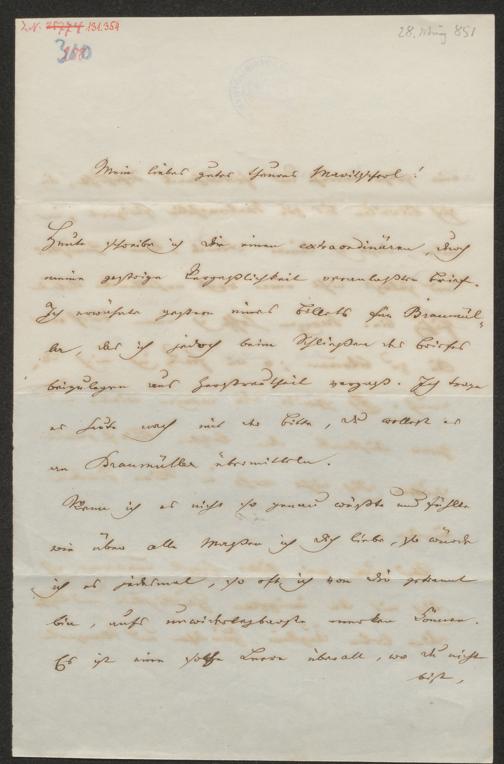 I.N. 35774 131.354
28. März 851
Mein liebes gutes theures
Heute schreibe ich Dir einen extraordinären, durch
meine gestrige Vergeßlichkeit veranlaßten Brief.
Ich erwähnte gestern eines Billets für Braumül-
ler, das ich jedoch beim Schließen des Briefes
beizulegen aus Zerstreutheit vergaß. Ich trage
es heute nach mit der Bitte, du wollest es
an Braumüller übermitteln.
Wenn ich es nicht so genau wüßte und fühlte
wie über alle Maßen ich dich liebe, so würde
ich es jedesmal, so oft ich von dir getrennt
bin, aufs unwiderlegbarste merken können.
Es ist eine solche Leere überall, wo du nicht
bist,